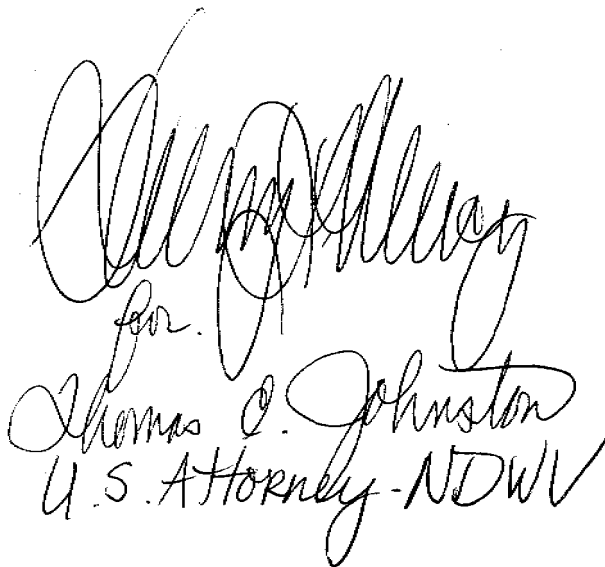 for.
Thomas E. Johnston
U.S. Attorney - NDWV